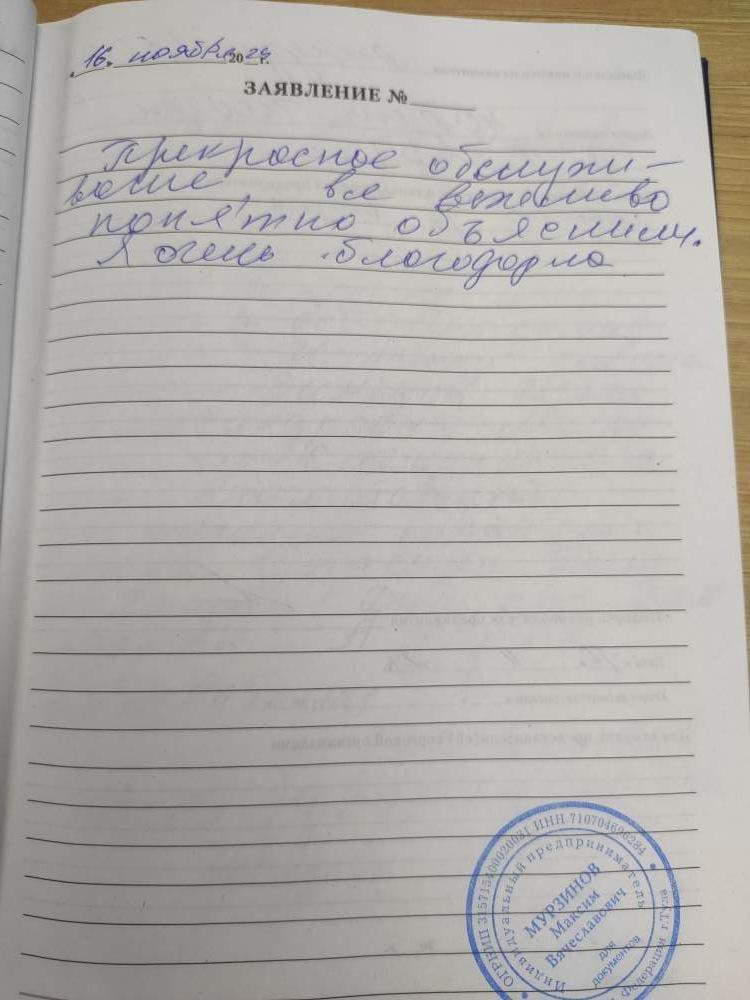 16. ноября 2024 г.
ЗАЯВЛЕНИЕ №
Прекрасное обслужи-
вание, все вежливо
понятно объяснили.
Я очень благодарна
ОГРНИП 315715400020031 ИНН 710704696284
Индивидуальный предприниматель
МУРЗИНОВ
Максим
Вячеславович
для
документов
Федерация г.Тула